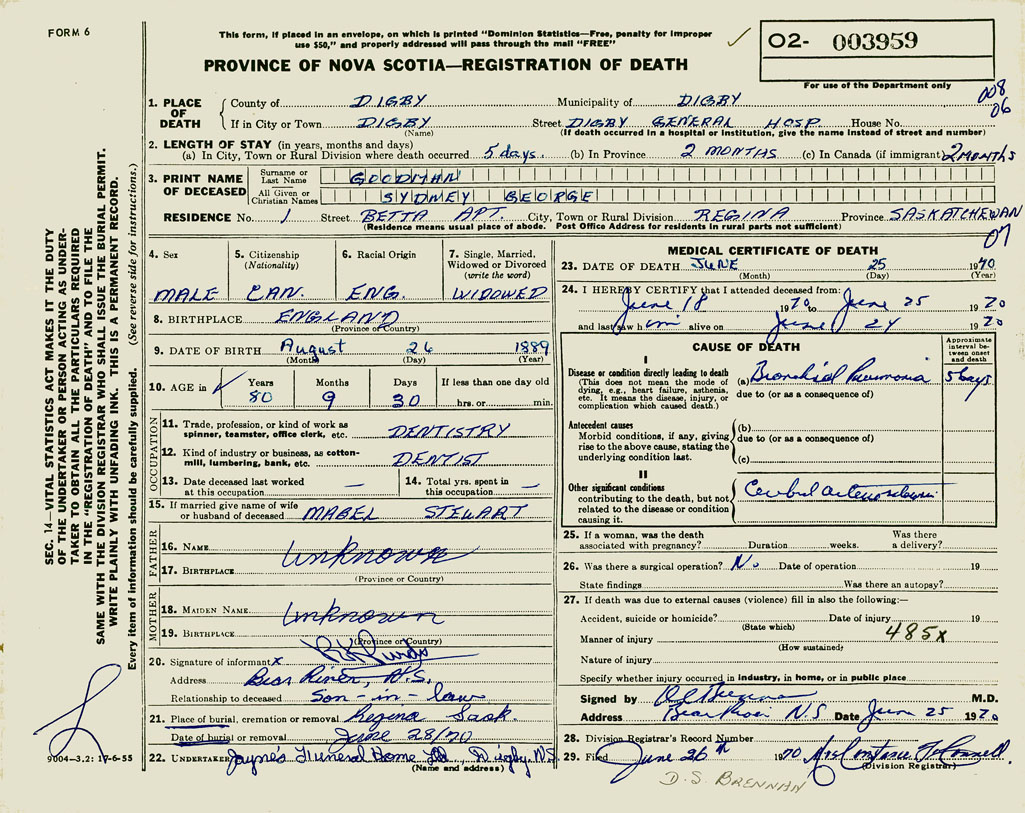 FORM 6
This form, if placed in an envelope, on which is printed "Dominion Statistics—Free, penalty for improper
use $50," and properly addressed will pass through the mail "FREE"
PROVINCE OF NOVA SCOTIA—REGISTRATION OF DEATH
02- 003959
For use of the Department only
008
06
1. PLACE OF DEATH County of DIGBY Municipality of DIGBY
If in City or Town DIGBY Street DIGBY GENERAL HOSP. House No.
(Name) (If death occurred in a hospital or institution, give the name instead of street and number)
2. LENGTH OF STAY (in years, months and days)
(a) In City, Town or Rural Division where death occurred 5 days. (b) In Province 2 MONTHS (c) In Canada (if immigrant) 2 MONTHS
3. PRINT NAME OF DECEASED Surname or Last Name GOODMAN
All Given or Christian Names SYDNEY GEORGE
RESIDENCE No. 1 Street BETTA APT. City, Town or Rural Division REGINA Province SASKATCHEWAN
(Residence means usual place of abode. Post Office Address for residents in rural parts not sufficient)
07
4. Sex 5. Citizenship (Nationality) 6. Racial Origin 7. Single, Married, Widowed or Divorced (write the word)
MALE CAN. ENG. WIDOWED
8. BIRTHPLACE ENGLAND
(Province or Country)
9. DATE OF BIRTH August 26 1889
(Month) (Day) (Year)
10. AGE in Years Months Days If less than one day old
80 9 30 hrs. or min.
OCCUPATION
11. Trade, profession, or kind of work as spinner, teamster, office clerk, etc. DENTISTRY
12. Kind of industry or business, as cotton-mill, lumbering, bank, etc. DENTIST
13. Date deceased last worked at this occupation — 14. Total yrs. spent in this occupation —
15. If married give name of wife or husband of deceased MABEL STEWART
FATHER
16. NAME Unknown
17. BIRTHPLACE
(Province or Country)
MOTHER
18. MAIDEN NAME Unknown
19. BIRTHPLACE
(Province or Country)
20. Signature of informant x
Address Bear River, N.S.
Relationship to deceased Son-in-law
21. Place of burial, cremation or removal Regina Sask.
Date of burial or removal June 28/70
22. UNDERTAKER Jayne's Funeral Home Ltd, Digby, N.S.
(Name and address)
MEDICAL CERTIFICATE OF DEATH
23. DATE OF DEATH JUNE 25 1970
(Month) (Day) (Year)
24. I HEREBY CERTIFY that I attended deceased from:
June 18 1970 to June 25 1970
and last saw him alive on June 24 1970
CAUSE OF DEATH
Approximate interval between onset and death
I
Disease or condition directly leading to death
(This does not mean the mode of dying, e.g., heart failure, asthenia, etc. It means the disease, injury, or complication which caused death.)
(a) Bronchial Pneumonia 5 days
due to (or as a consequence of)
Antecedent causes
Morbid conditions, if any, giving rise to the above cause, stating the underlying condition last.
(b)
due to (or as a consequence of)
(c)
II
Other significant conditions
contributing to the death, but not related to the disease or condition causing it.
25. If a woman, was the death associated with pregnancy? Duration weeks. Was there a delivery?
26. Was there a surgical operation? No Date of operation 19
State findings Was there an autopsy?
27. If death was due to external causes (violence) fill in also the following:—
Accident, suicide or homicide? Date of injury 19
(State which)
485x
Manner of injury
(How sustained)
Nature of injury
Specify whether injury occurred in industry, in home, or in public place
Signed by M.D.
Address Bear River N.S. Date June 25 1970
28. Division Registrar's Record Number
29. Filed June 26th 1970
(Division Registrar)
D.S. BRENNAN
SEC. 14—VITAL STATISTICS ACT MAKES IT THE DUTY
OF THE UNDERTAKER OR PERSON ACTING AS UNDER-
TAKER TO OBTAIN ALL THE PARTICULARS REQUIRED
IN THE "REGISTRATION OF DEATH" AND TO FILE THE
SAME WITH THE DIVISION REGISTRAR WHO SHALL ISSUE THE BURIAL PERMIT.
WRITE PLAINLY WITH UNFADING INK. THIS IS A PERMANENT RECORD.
Every item of information should be carefully supplied. (See reverse side for instructions.)
9004—3.2: 17-6-55